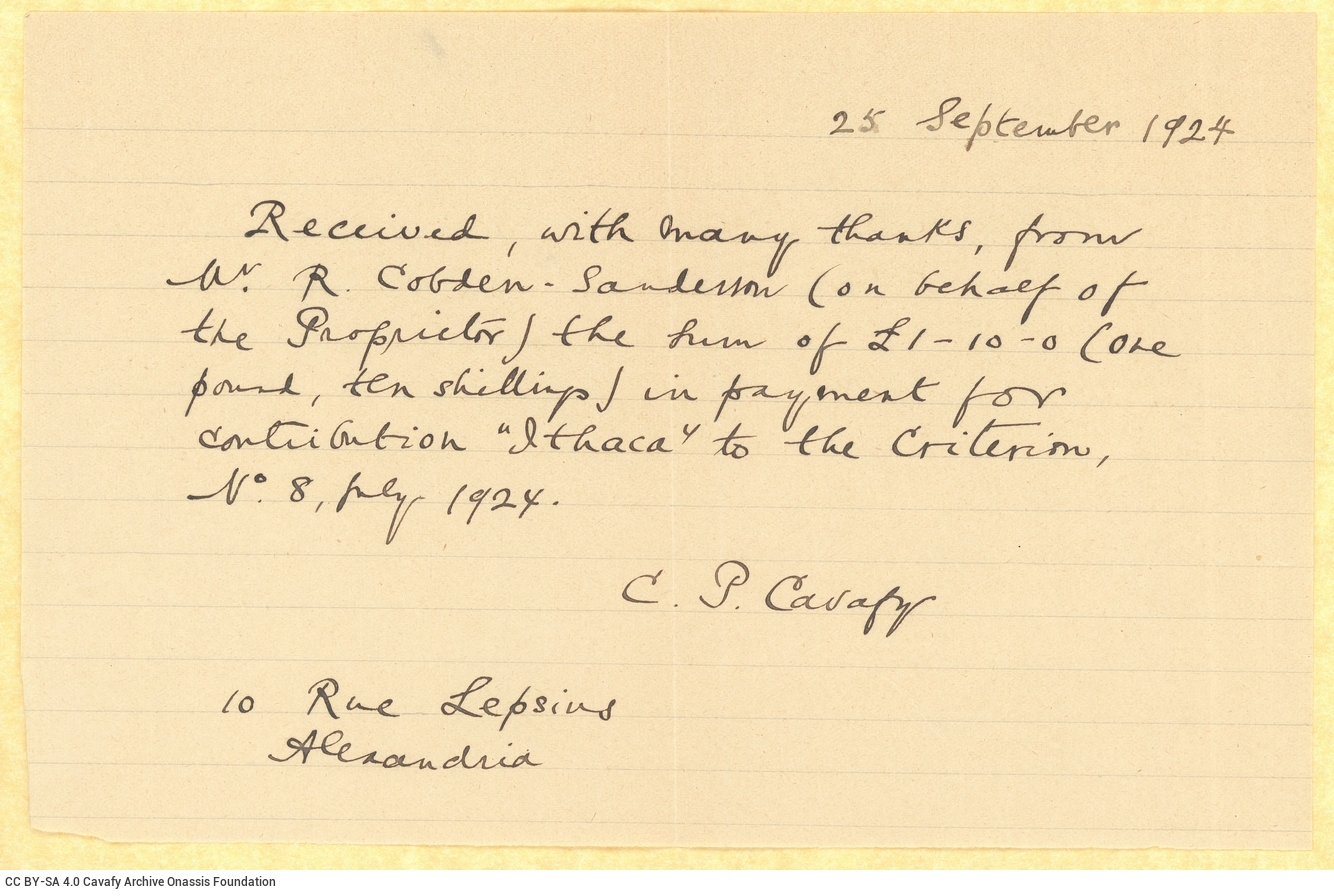 25 September 1924
Received, with many thanks, from
Mr. R. Cobden-Sanderson (on behalf of
the Proprietor) the sum of £1-10-0 (one
pound, ten shillings) in payment for
contribution "Ithaca" to the Criterion,
No. 8, July 1924.
C. P. Cavafy
10 Rue Lepsius
Alexandria
CC BY-SA 4.0 Cavafy Archive Onassis Foundation